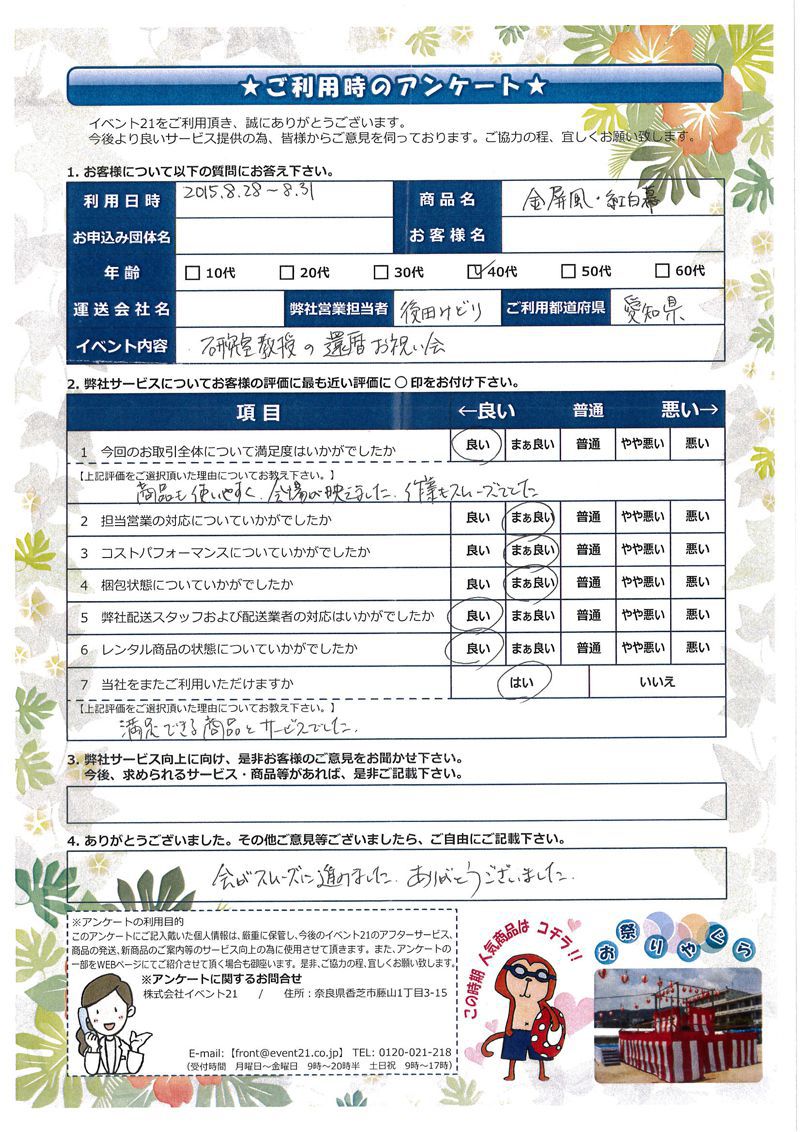 ★ご利用時のアンケート★
イベント21をご利用頂き、誠にありがとうございます。
今後より良いサービス提供の為、皆様からご意見を伺っております。ご協力の程、宜しくお願い致します。
1. お客様について以下の質問にお答え下さい。
利用日時 2015.8.28～8.31 商品名 金屏風・紅白幕
お申込み団体名 お客様名
年齢 □10代 □20代 □30代 ☑40代 □50代 □60代
運送会社名 弊社営業担当者 後田みどり ご利用都道府県 愛知県
イベント内容 研究室教授の還暦お祝い会
2. 弊社サービスについてお客様の評価に最も近い評価に ○ 印をお付け下さい。
項目 ←良い 普通 悪い→
1 今回のお取引全体について満足度はいかがでしたか 良い まぁ良い 普通 やや悪い 悪い
【上記評価をご選択頂いた理由についてお教え下さい。】
商品も使いやすく、会場が映えました。作業もスムーズでした
2 担当営業の対応についていかがでしたか 良い まぁ良い 普通 やや悪い 悪い
3 コストパフォーマンスについていかがでしたか 良い まぁ良い 普通 やや悪い 悪い
4 梱包状態についていかがでしたか 良い まぁ良い 普通 やや悪い 悪い
5 弊社配送スタッフおよび配送業者の対応はいかがでしたか 良い まぁ良い 普通 やや悪い 悪い
6 レンタル商品の状態についていかがでしたか 良い まぁ良い 普通 やや悪い 悪い
7 当社をまたご利用いただけますか はい いいえ
【上記評価をご選択頂いた理由についてお教え下さい。】
満足できる商品とサービスでした。
3. 弊社サービス向上に向け、是非お客様のご意見をお聞かせ下さい。
今後、求められるサービス・商品等があれば、是非ご記載下さい。
4. ありがとうございました。その他ご意見等ございましたら、ご自由にご記載下さい。
会がスムーズに進みました。ありがとうございました。
※アンケートの利用目的
このアンケートにご記入戴いた個人情報は、厳重に保管し、今後のイベント21のアフターサービス、
商品の発送、新商品のご案内等のサービス向上の為に使用させて頂きます。また、アンケートの
一部をWEBページにてご紹介させて頂く場合も御座います。是非、ご協力の程、宜しくお願い致します。
※アンケートに関するお問合せ
株式会社イベント21 / 住所：奈良県香芝市藤山1丁目3-15
E-mail:【front@event21.co.jp】 TEL: 0120-021-218
（受付時間 月曜日～金曜日 9時～20時半 土日祝 9時～17時）
この時期 人気商品は コチラ!!
お祭りやぐら